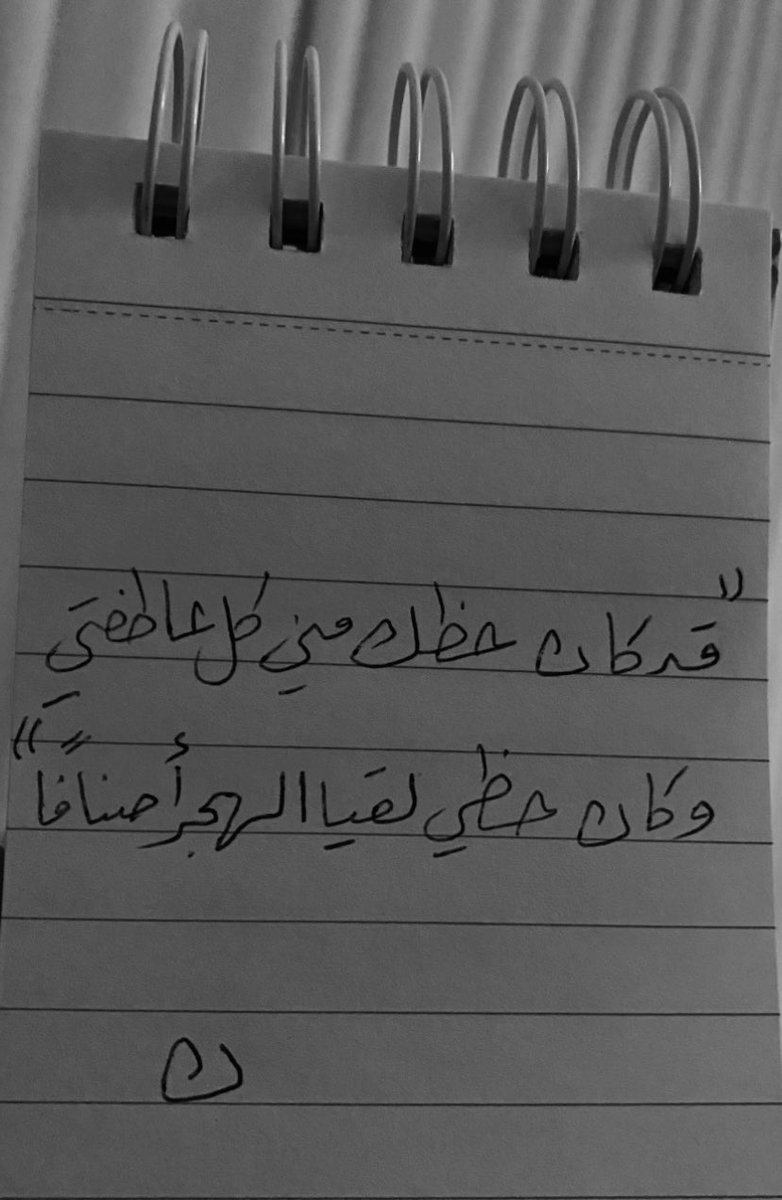 "قد كان حظك مني كل عاطفتي
وكان حظي لقيا الهجر أصنافاً"
ن